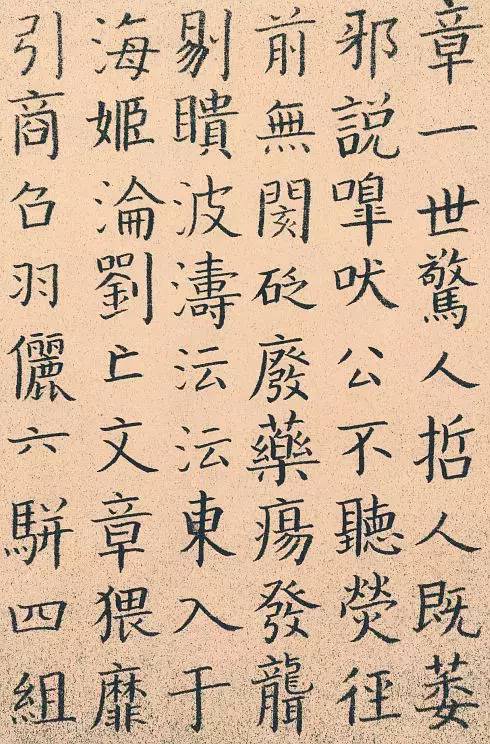 章一世驚人哲人既萎
邪説嘷吠公不聽熒徑
前無閡砭廢藥瘍發聾
剔瞶波濤沄沄東入于
海姬淪劉亡文章猥靡
引商召羽儷六駢四組